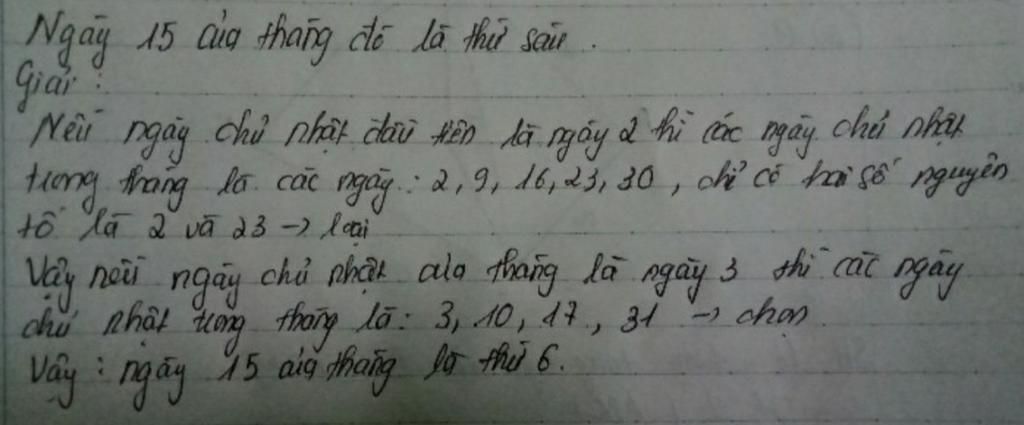 Ngày 15 của tháng đó là thứ sáu.
Giải :
Nếu ngày chủ nhật đầu tiên là ngày 2 thì các ngày chủ nhật
trong tháng là các ngày : 2, 9, 16, 23, 30 , chỉ có hai số nguyên
tố là 2 và 23 -> loại
Vậy nếu ngày chủ nhật của tháng là ngày 3 thì các ngày
chủ nhật trong tháng là : 3, 10, 17, 31 -> chọn
Vậy : ngày 15 của tháng là thứ 6.